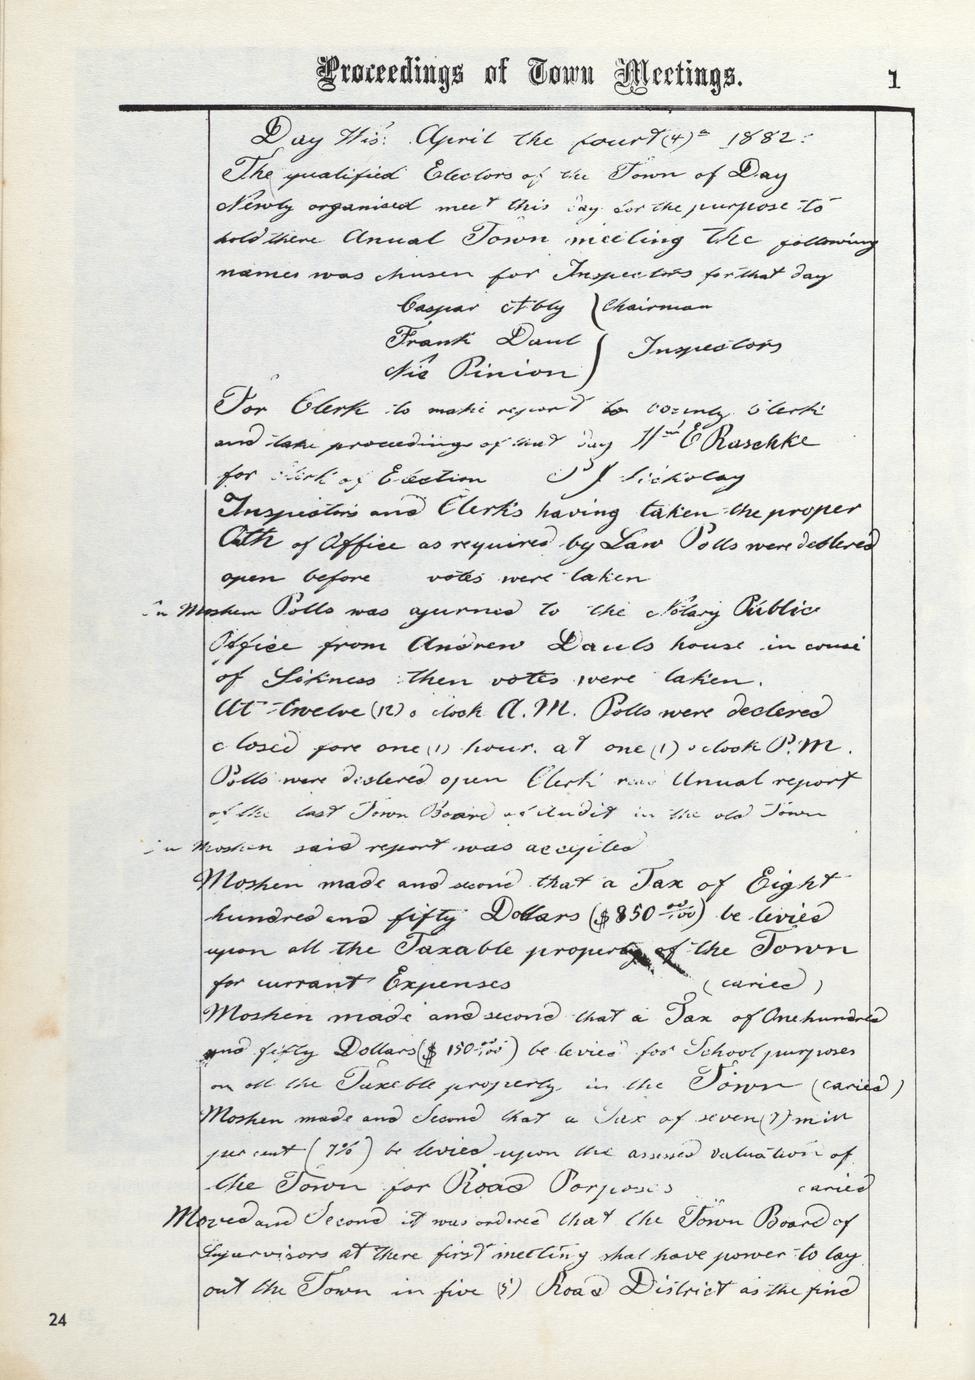 Proceedings of Town Meetings.
1
Day Wis: April the fourt (4)th 1882:
The qualified Electors of the Town of Day
Newly organised meet this day for the purpose to
hold there Anual Town meeting The following
names was chusen for Inspectors for that day
Caspar Ably } Chairman
Frank Daul } Inspectors
Nic Pinion
For Clerk to make report to County Clerk
and take proceedings of that day Wm E Raschke
for Clerk of Election P J Sickolay
Inspectors and Clerks having taken the proper
Oath of Office as required by Law Polls were declered
open before votes were taken
in Moshen Polls was ajurned to the Notary Public
Office from Andrew Dauls house in couse
of Sikness then votes were taken.
At twelve (12) o clock A.M. Polls were declered
closed fore one (1) hour. at one (1) o clook P.M.
Polls were declered open Clerk read Anual report
of the last Town Board of Audit in the old Town
in Moshen said report was accepted
Moshen made and second that a Tax of Eight
hundred and fifty Dollars ($850 00/100) be levied
upon all the Taxable property of the Town
for currant Expenses (caried)
Moshen made and second that a Tax of One hundred
and fifty Dollars ($ 150 00/100) be levied for School purposes
on all the Taxeble property in the Town (caried)
Moshen made and Second that a Tax of seven (7) mill
per cent (7%) be levied upon the assessed valuation of
the Town for Road Porposes caried
Moved and Second it was ordered that the Town Board of
Supervisors at there first meetting shal have power to lay
out the Town in five (5) Road District as the find
24